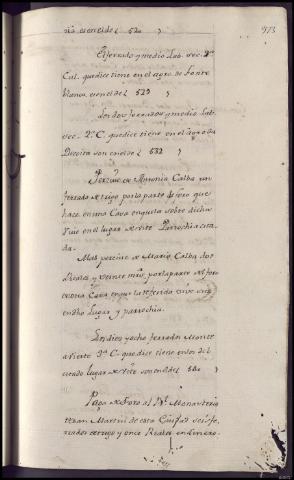 973
es en el de ( 520 )
El ferrado y medio Lab. sec. 2ª
Cal. que dice tiene en el agro de Fonte
blanca, es en el de ( 529 )
Los dos ferrados y medio Lab.
sec. 2ª C. que dice tiene en el agro da
Pereira son en el de ( 532 )
Percive de Antonia Calba un
ferrado de trigo por la parte de foro que
hace en una Casa en que la sobre dicha
vive en el lugar de Parrochia cita
da.
Mas percive de Maria Calba dos
Reales y veinte mrs. por la parte de foro
en una Casa en que la referida vive en
en dho Lugar y parrochia.
Los diez y ocho ferrados Monte
avierto 3ª C. que dice tiene en los del
citado lugar de son en el de ( 580 )
Paga de foro al Rl. Monasterio
de San Martin de esta Ciudad seis fe
rrados de trigo y once Reales en dinero.